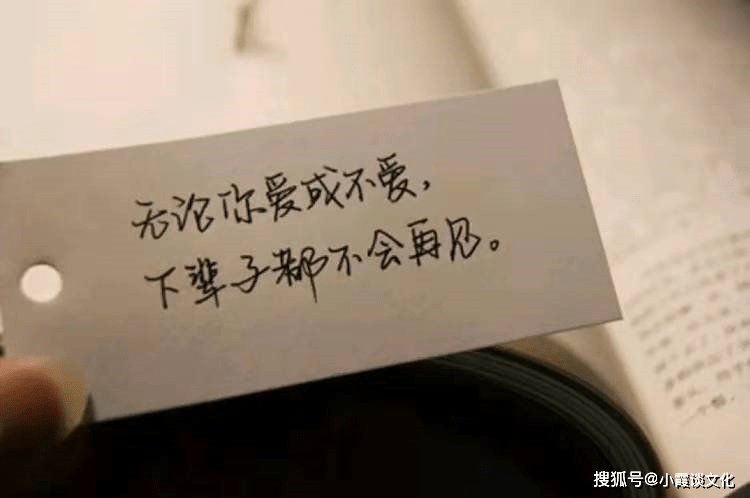 无论你爱或不爱，
下辈子都不会再见。
搜狐号@小霞谈文化